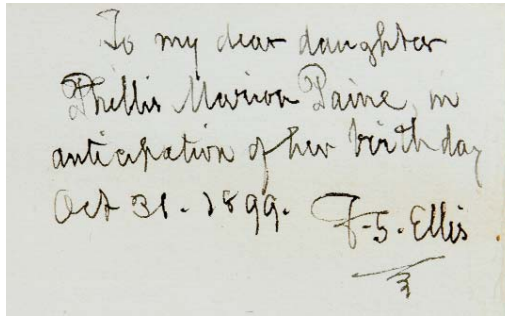 To my dear daughter
Phillis Marion Paine, in
anticipation of her birthday
Oct 31. 1899. F. S. Ellis